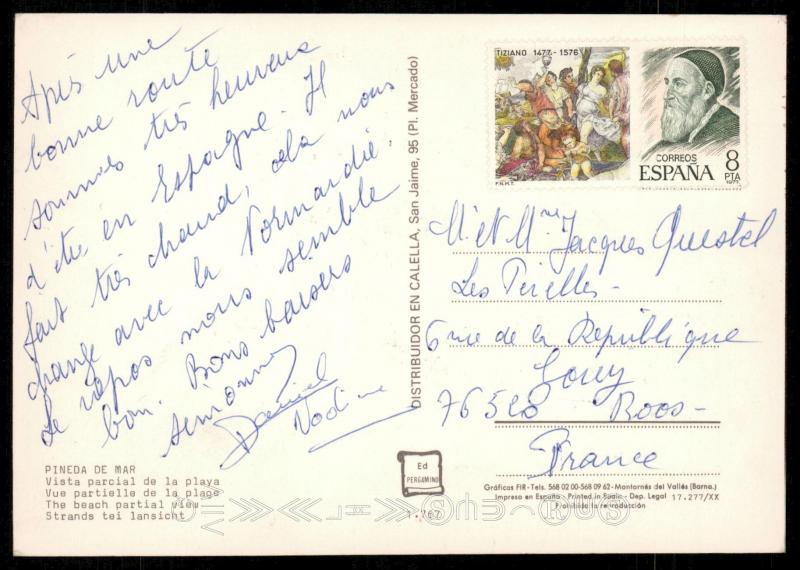 Après une
bonne route
sommes très heureux
d'être en Espagne. Il
fait très chaud, cela nous
change avec la Normandie.
Le repos nous semble
bon. Bons baisers
Daniel
Nadine
PINEDA DE MAR
Vista parcial de la playa
Vue partielle de la plage
The beach partial view
Strands tei lansicht
DISTRIBUIDOR EN CALELLA, San Jaime, 95 (Pl. Mercado)
Ed
PERGAMINO
1.767
TIZIANO 1477-1576
F.N.M.T.
CORREOS
ESPAÑA
8
PTA
1977
M. et Mme Jacques Questel
Les
6 rue de la République
76520 Boos
France
Gráficas FIR - Tels. 568 02 00-568 09 62 - Montornés del Vallés (Barna.)
Impreso en España - Printed in Spain - Dep. Legal 17.277/XX
Prohibida la reproducción